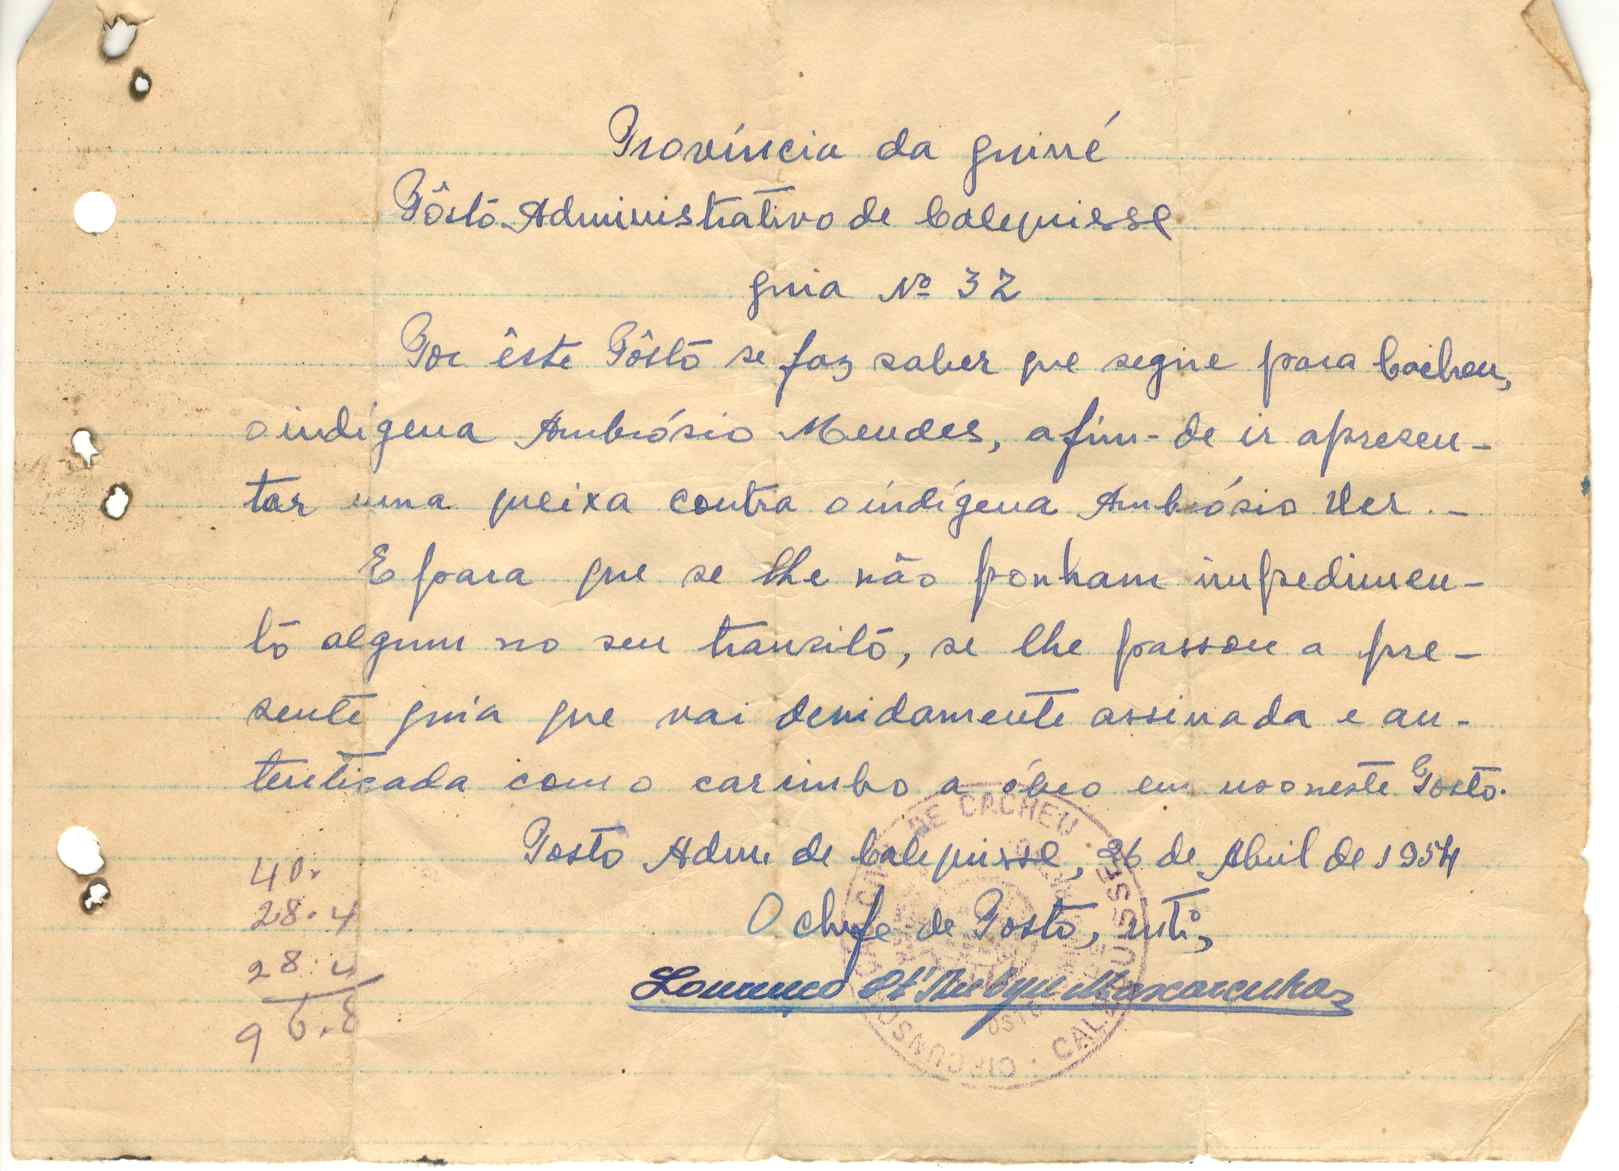 Província da Guiné
Pôsto Administrativo de Calequisse
Guia Nº 32
Por êste Pôsto se faz saber que segue para Cacheu,
o indígena Ambrósio Mendes, afim-de ir apresen-
tar uma queixa contra o indígena Ambrósio Uer. -
E para que se lhe não ponham impedimen-
to algum no seu transito, se lhe passou a pre-
sente guia que vai devidamente assinada e au-
tenticada com o carimbo a óleo em uso neste Posto.
Posto Adm. de Calequisse, 26 de Abril de 1954
O Chefe de Posto, intº,
Lourenço Mascarenhas
40.
28.4
28.4
96.8
DE CACHEU
CIRCUNS